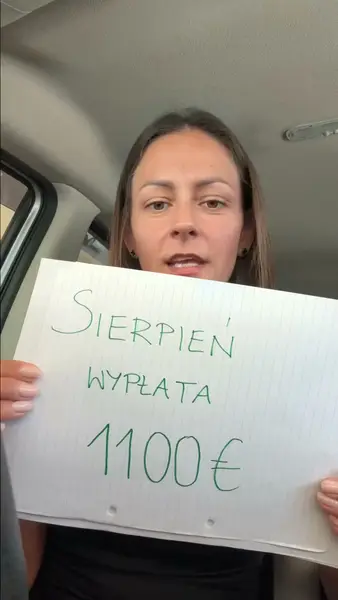 SIERPIEŃ
WYPŁATA
1100€